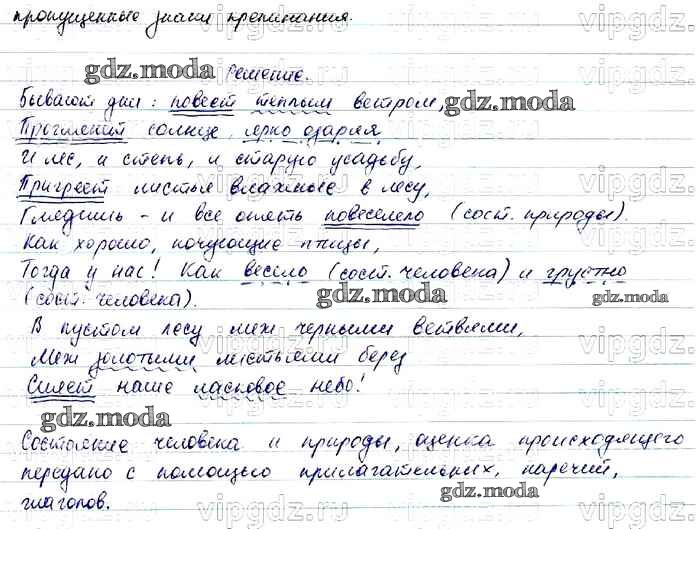 пропущенные знаки препинания.
Решение.
Бывают дни: повеет теплым ветром,
Проглянет солнце, ярко озаряя
И лес, и степь, и старую усадьбу,
Пригреет листья влажные в лесу,
Глядишь - и все опять повеселело (сост. природы).
Как хорошо, кочующие птицы,
Тогда у нас! Как весело (сост. человека) и грустно
(сост. человека).
В пустом лесу меж черными ветвями,
Меж золотыми листьями берез
Синеет наше ласковое небо!
Состояние человека и природы, оценка происходящего
передано с помощью прилагательных, наречий,
глаголов.
gdz.moda
gdz.moda
gdz.moda
gdz.moda
gdz.moda
gdz.moda
vipgdz.ru